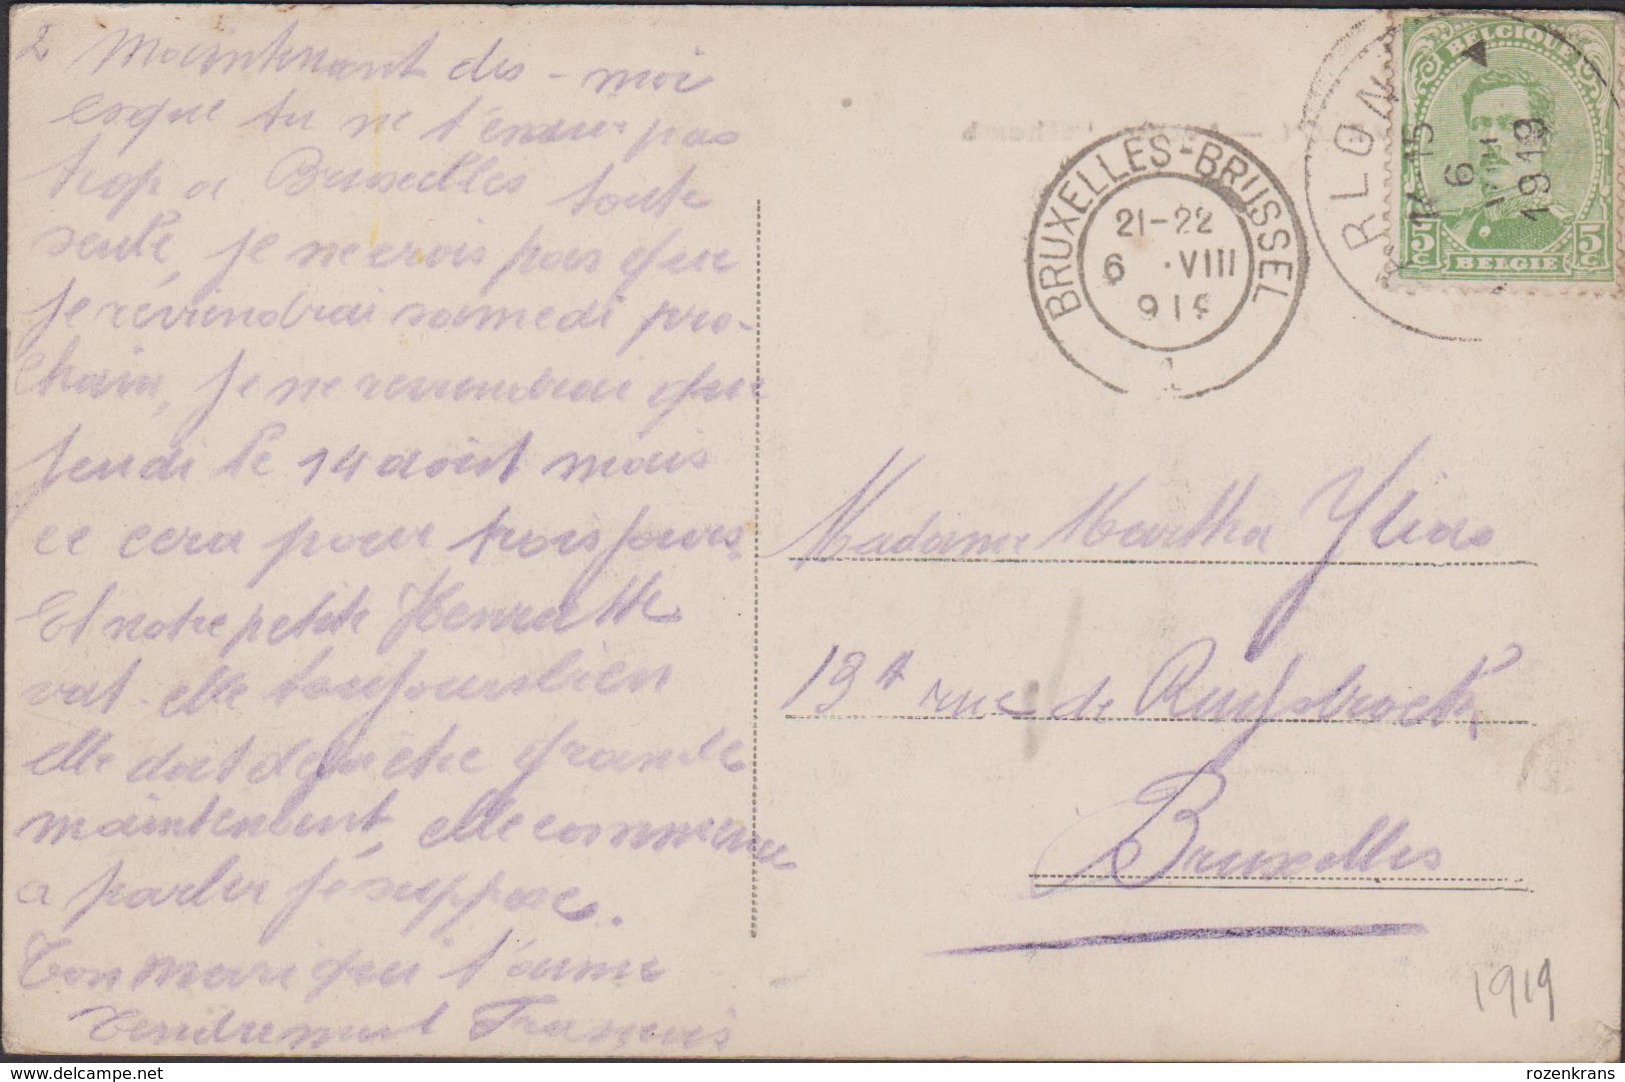 2 Maintenant dis - moi
esque tu ne t'ennui pas
trop a Bruxelles toute
seule, je ne crois pas que
je reviendrai samedi pro-
chain, je ne reviendrai que
jeudi le 14 août mais
ce cera pour trois jours.
Et notre petite Henriette
vat-elle toujours bien
elle doit déja être grande
maintenant, elle commence
a parler je suppose.
Ton mari qui t'aime
tendrement François
BRUXELLES-BRUSSEL
21-22
6 ·VIII
191
1
RLON
14-15
6
VIII
1919
BELGIQUE
5c 5c
BELGIE
Madame Martha Ylias
13A rue de Ruysbroeck
Bruxelles
1919
delcampe.net
rozenkrans